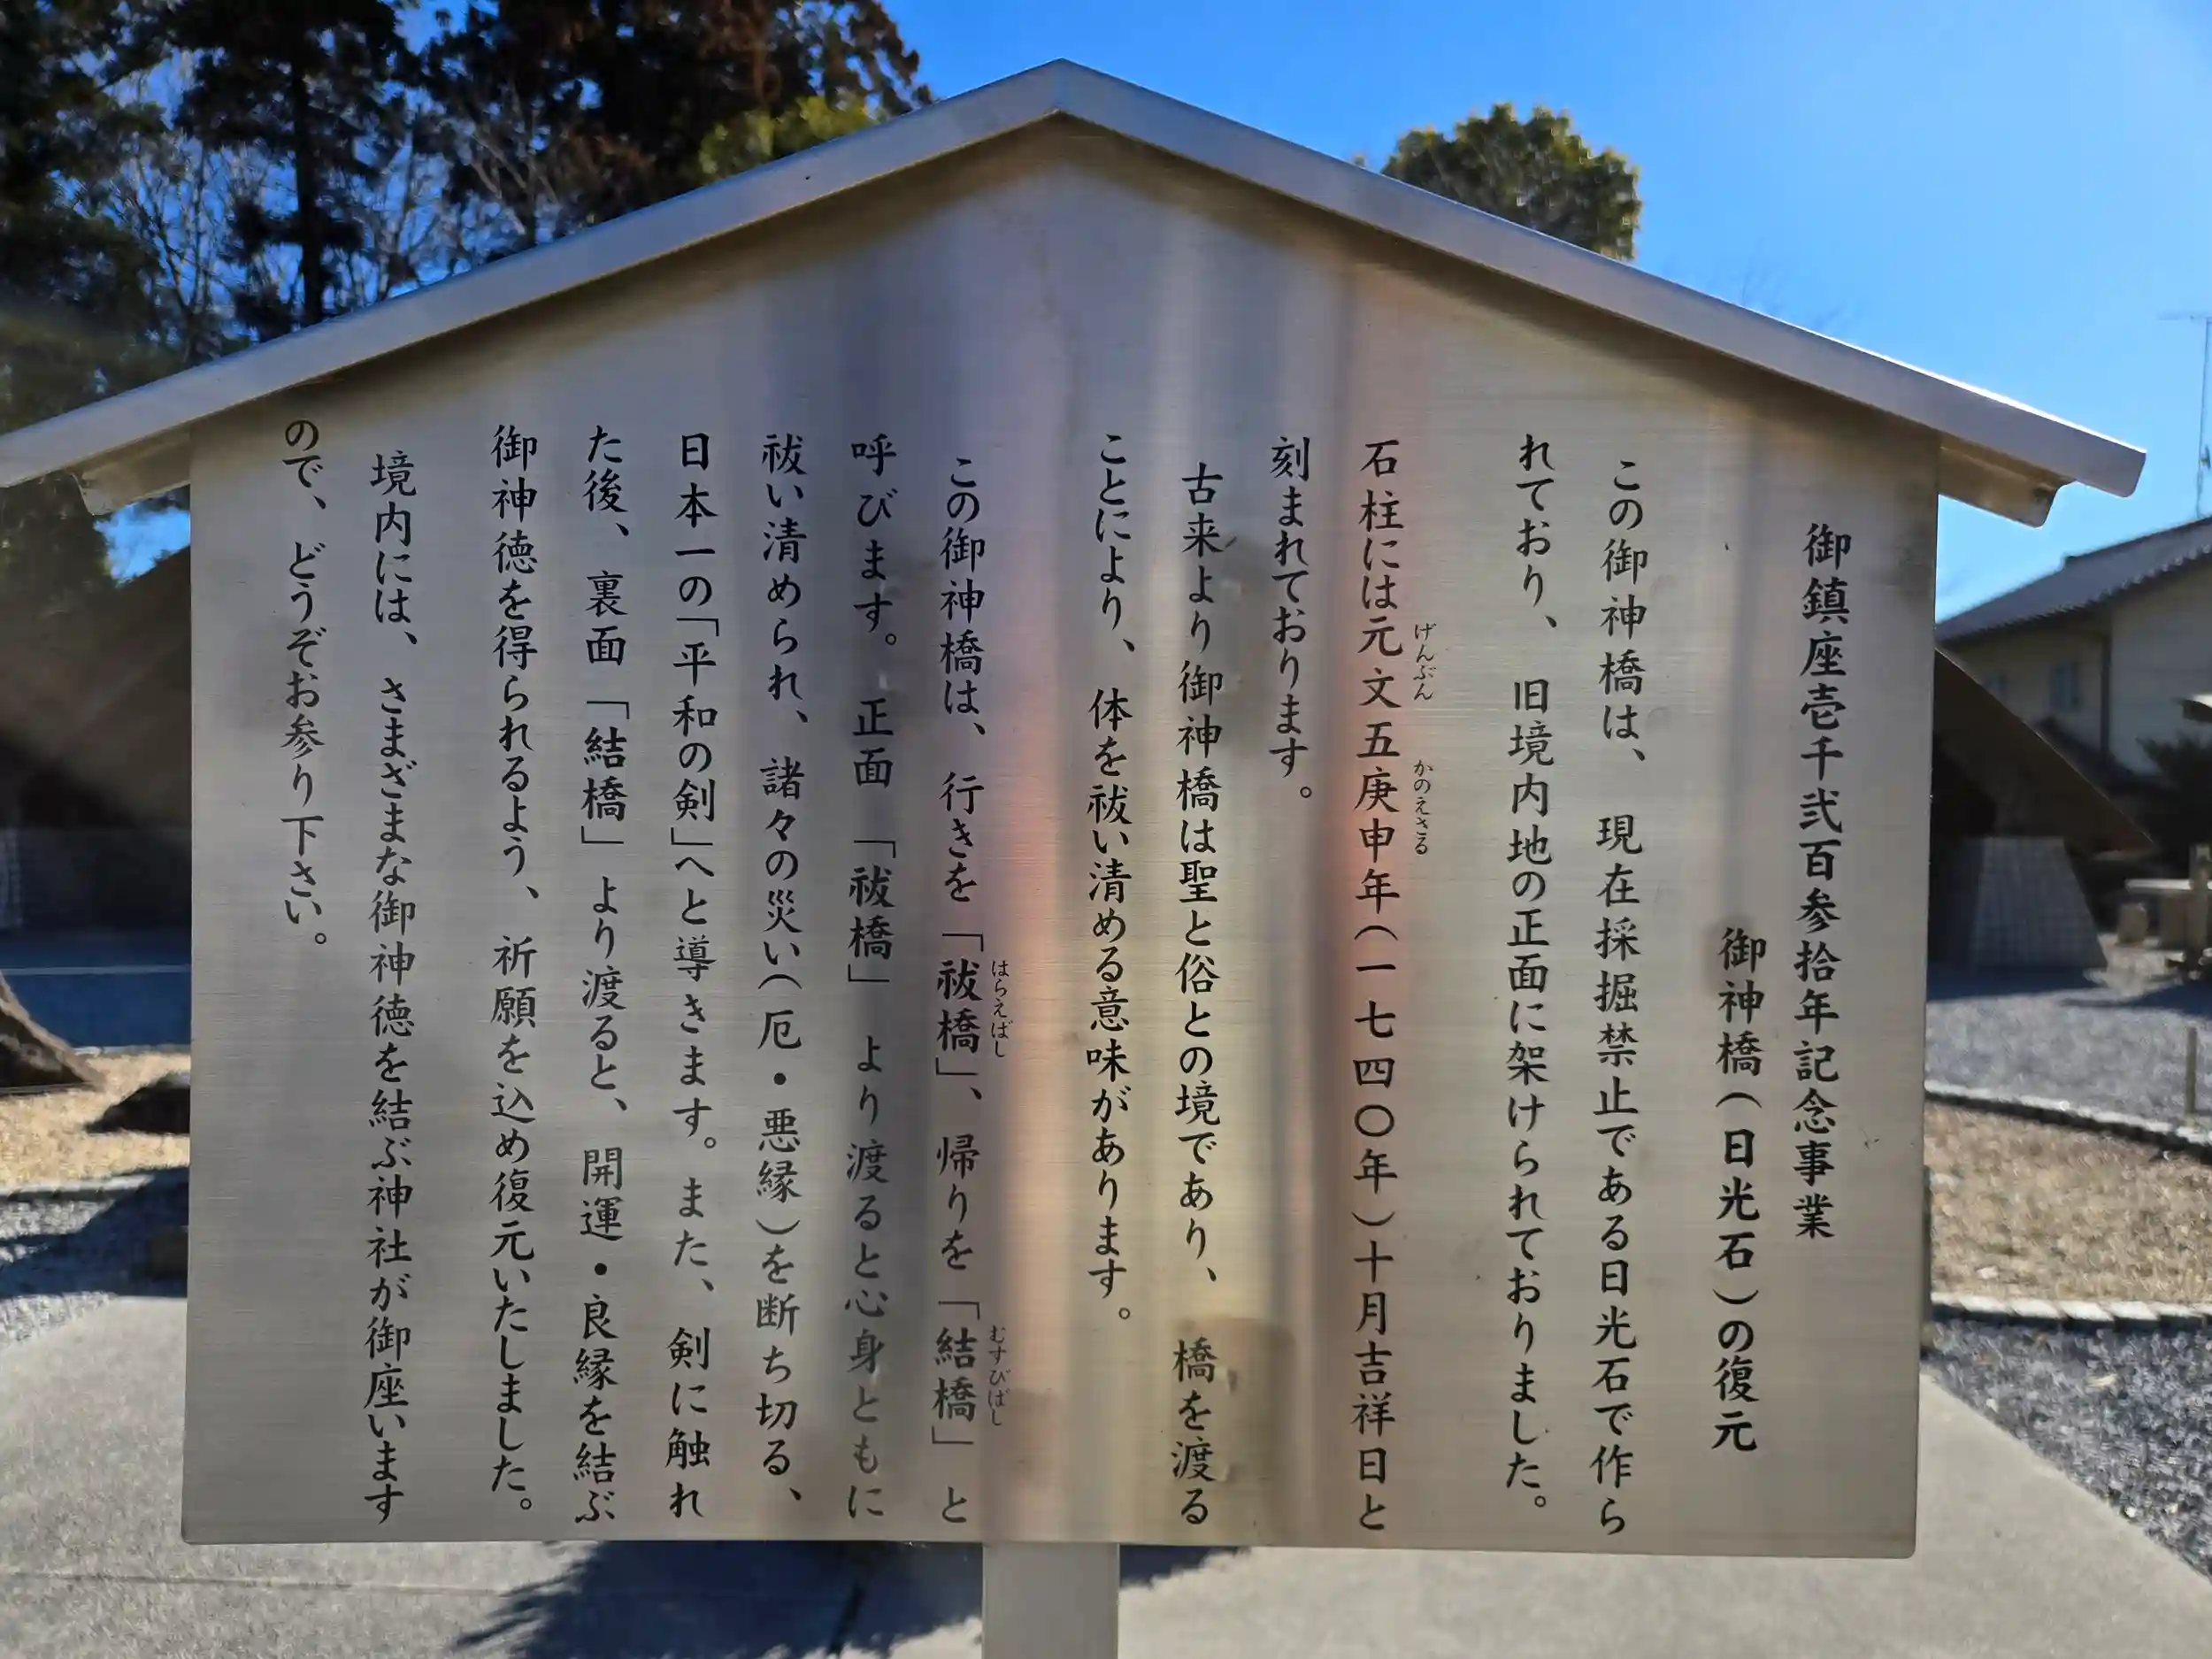 御鎮座壱千弐百参拾年記念事業
御神橋(日光石)の復元
この御神橋は、現在採掘禁止である日光石で作ら
れており、旧境内地の正面に架けられておりました。
石柱には元文五庚申年(一七四〇年)十月吉祥日と
げんぶん
かのえさる
刻まれております。
古来より御神橋は聖と俗との境であり、橋を渡る
ことにより、体を祓い清める意味があります。
この御神橋は、行きを「祓橋」、帰りを「結橋」と
はらえばし
むすびばし
呼びます。正面「祓橋」より渡ると心身ともに
祓い清められ、諸々の災い(厄・悪縁)を断ち切る、
日本一の「平和の剣」へと導きます。また、剣に触れ
た後、裏面「結橋」より渡ると、開運・良縁を結ぶ
御神徳を得られるよう、祈願を込め復元いたしました。
境内には、さまざまな御神徳を結ぶ神社が御座います
ので、どうぞお参り下さい。